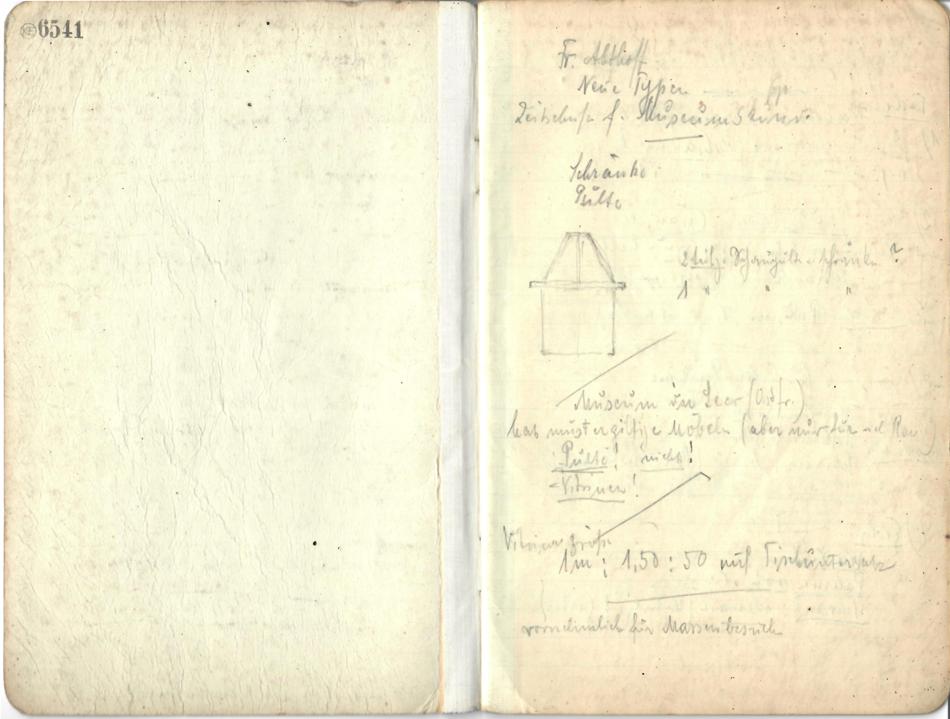 6541
Fr. Althoff
Neue Typen
Zeitschrift f. Museumskunde.
Schränke
Pulte
2 teilig. Schaupulte schränke ?
1 " " "
Museum in Leer (Ostfr.)
hat mustergiltige Möbeln (aber nur für
Pulte! nicht!
Vitrinen!
Vitrinengröße
1m : 1,50 : 50 auf Tischuntersatz
vornehmlich für Massenbesuch